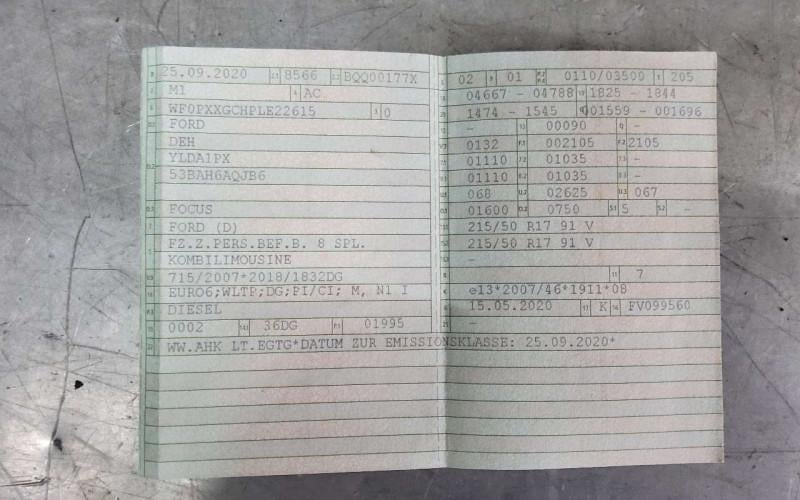 25.09.2020 2.1 8566 2.2 BQQ00177X
M1 4 AC
WF0PXXGCHPLE22615 3 0
FORD
DEH
YLDA1PX
53BAH6AQJB6
FOCUS
FORD (D)
FZ.Z.PERS.BEF.B. 8 SPL.
KOMBILIMOUSINE
715/2007*2018/1832DG
EURO6;WLTP;DG;PI/CI; M, N1 I
DIESEL
0002 14.1 36DG P.1 01995
WW.AHK LT.EGTG*DATUM ZUR EMISSIONSKLASSE: 25.09.2020*
02 9 01 P.2 P.4 0110/03500 T 205
04667 - 04788 19 1825 - 1844
1474 - 1545 001559 - 001696
- 13 00090 Q -
0132 F.1 002105 F.2 2105
01110 7.2 01035 7.3 -
01110 8.2 01035 8.3 -
068 U.2 02625 U.3 067
01600 O.2 0750 S.1 5 S.2 -
215/50 R17 91 V
215/50 R17 91 V
-
11 7
e13*2007/46*1911*08
15.05.2020 17 K 16 FV099560
-